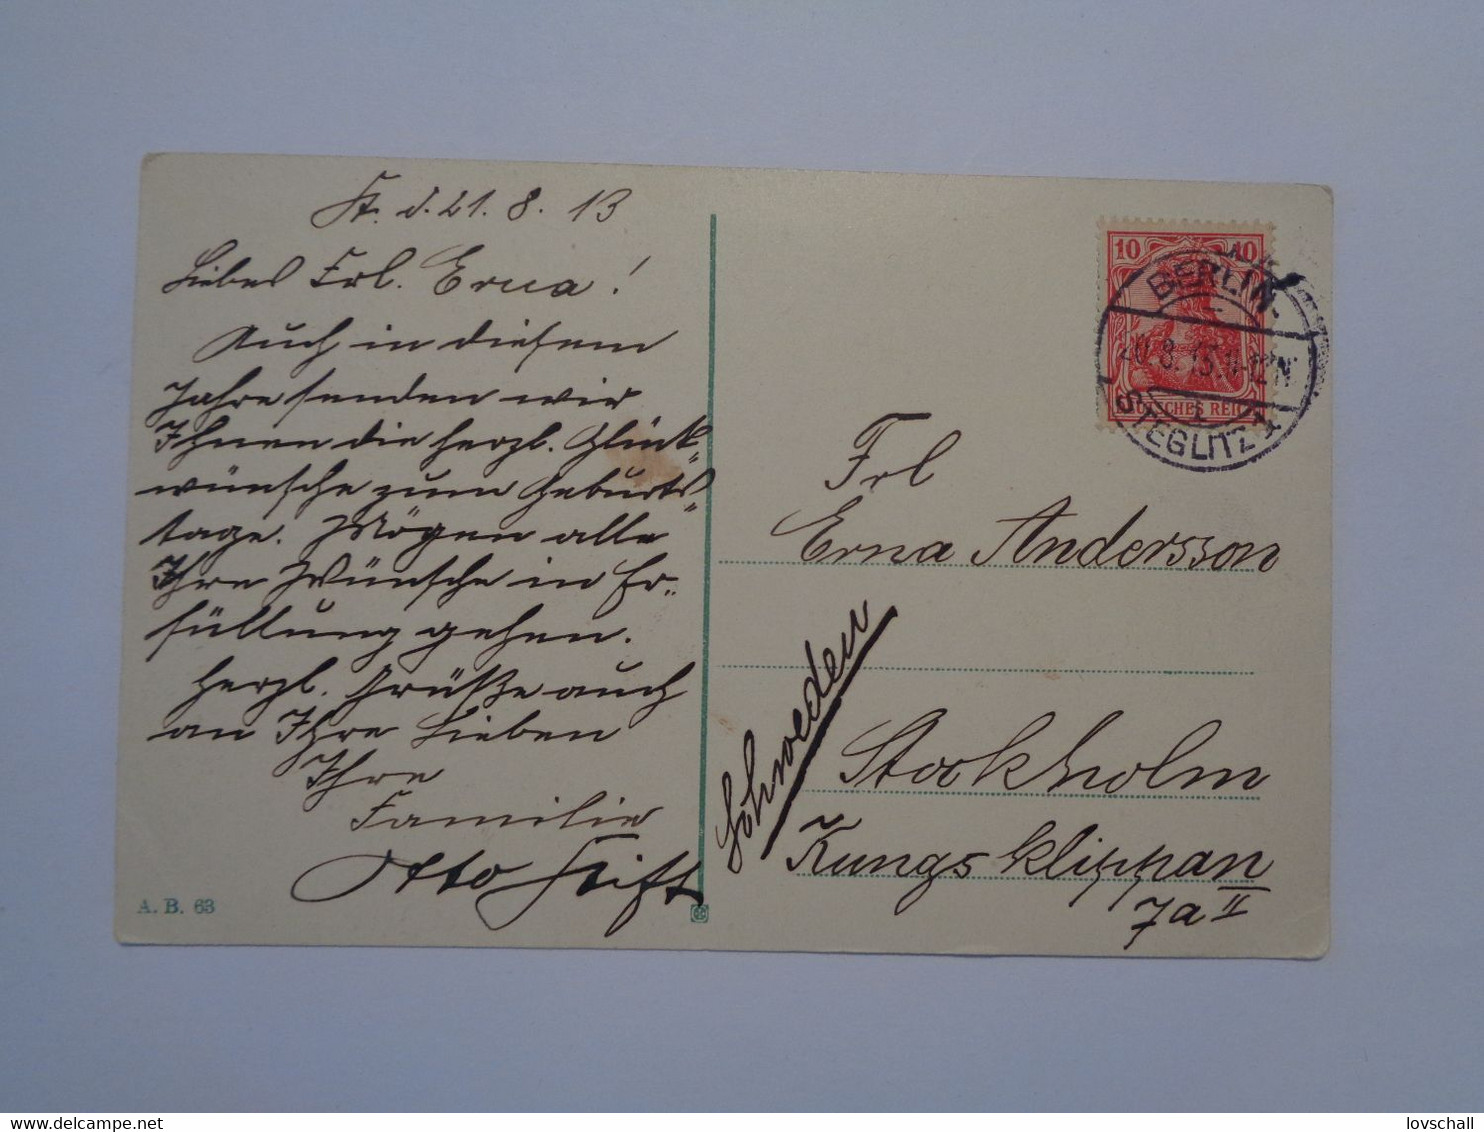 St. d. 21. 8. 13
Liebes Frl. Erna!
Auch in diesem
Jahre senden wir
Ihnen die herzl. Glück-
wünsche zum Geburts-
tage. Mögen alle
Ihre Wünsche in Er-
füllung gehen.
Herzl. Grüße auch
an Ihre Lieben
Ihre
Familie
Otto
A. B. 63
10 10
DEUTSCHES REICH
BERLIN-
20.8.13.11-12N
STEGLITZ 1
Frl
Erna Andersson
Schweden
Stockholm
Kungsklippan
7a II
lovschall